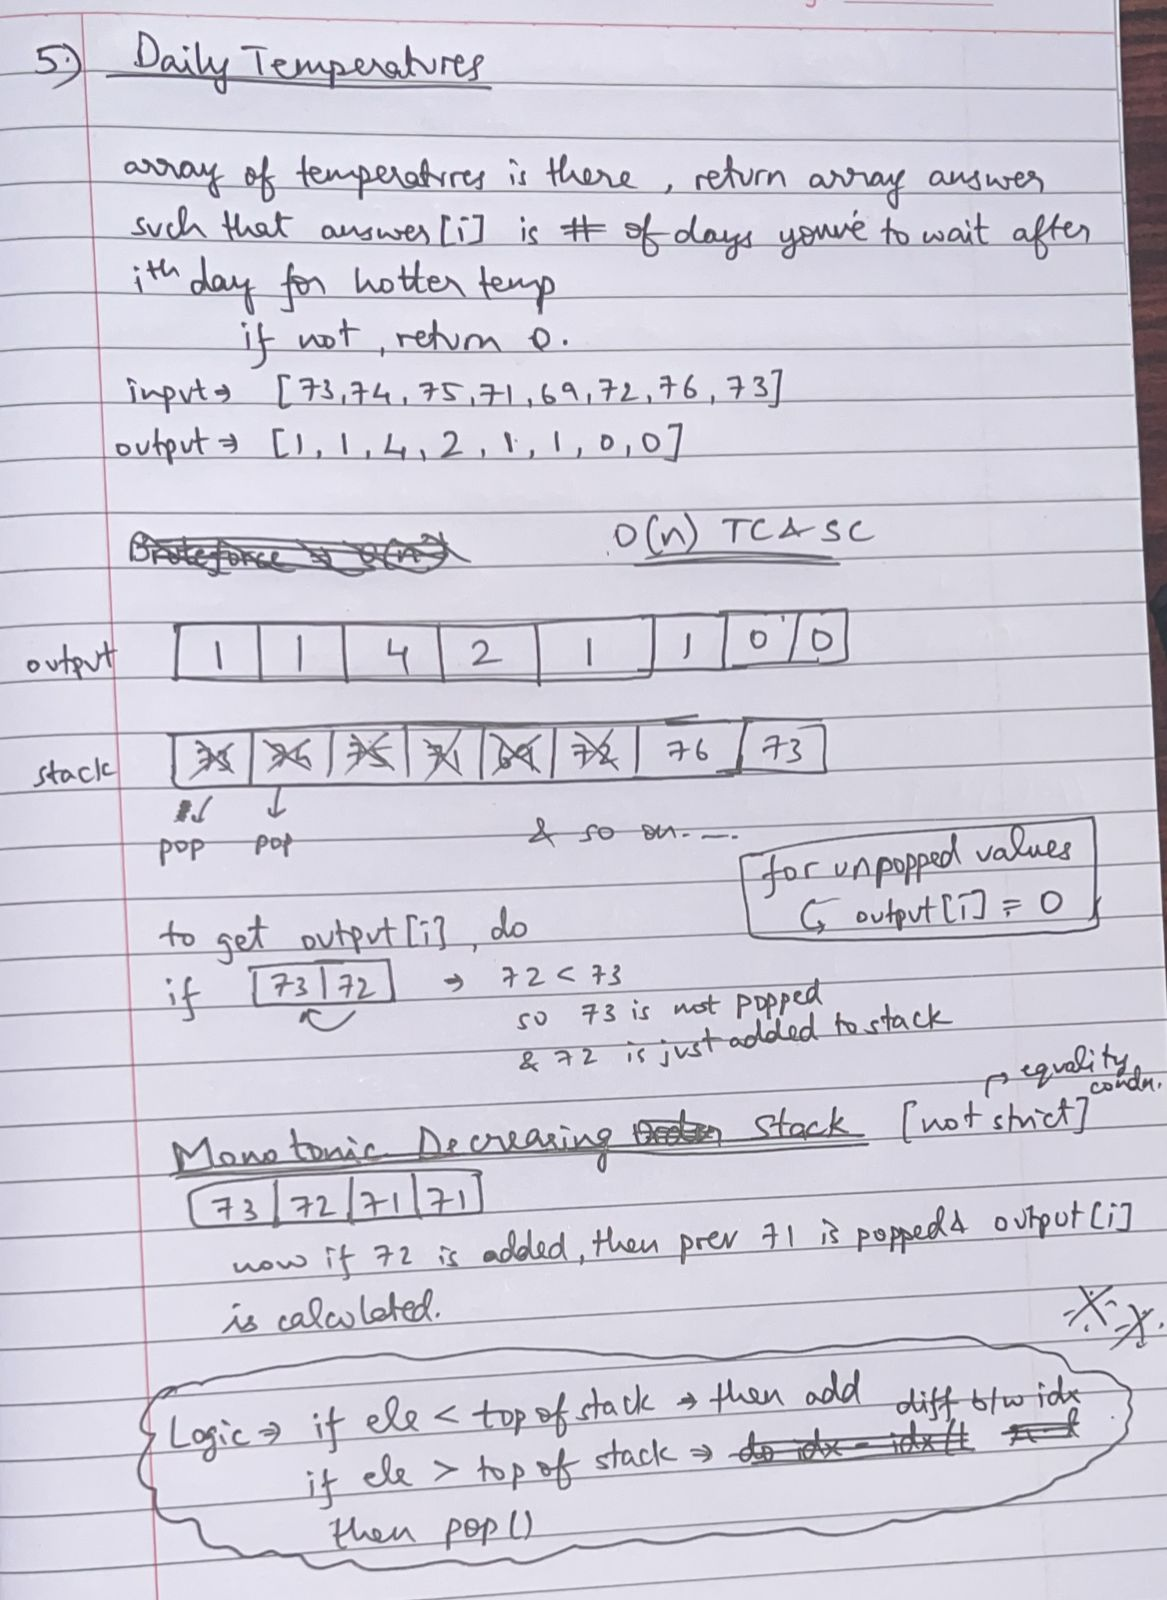 5.) Daily Temperatures
array of temperatures is there, return array answer
such that answer[i] is # of days youve to wait after
ith day for hotter temp
if not, return 0.
input⇒ [73,74,75,71,69,72,76,73]
output⇒ [1,1,4,2,1,1,0,0]
Bruteforce ⇒ O(n²)
O(n) TC & SC
output 1 1 4 2 1 1 0 0
stack 73 74 75 71 69 72 76 73
pop pop
& so on.....
for unpopped values
↳ output[i] = 0
to get output[i], do
if 73 | 72 ⇒ 72 < 73
so 73 is not popped
& 72 is just added to stack
→ equality condn.
Monotonic Decreasing Stack [not strict]
73 | 72 | 71 | 71
now if 72 is added, then prev 71 is popped & output[i]
is calculated.
Logic ⇒ if ele < top of stack ⇒ then add
diff b/w idx
if ele > top of stack ⇒ do idx - idx
then pop()